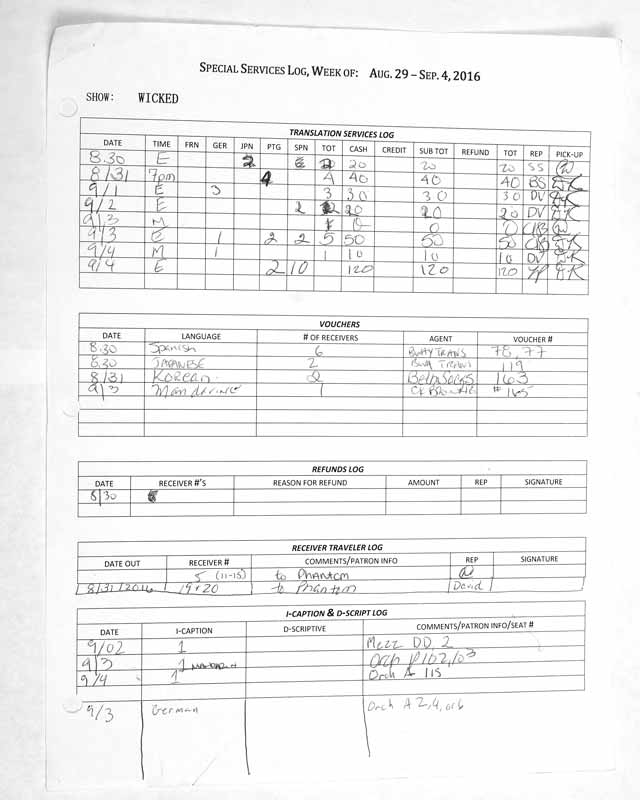 SPECIAL SERVICES LOG, WEEK OF: AUG. 29 – SEP. 4, 2016
SHOW: WICKED
TRANSLATION SERVICES LOG
DATE TIME FRN GER JPN PTG SPN TOT CASH CREDIT SUB TOT REFUND TOT REP PICK-UP
8.30 E 2 2 20 20 20 SS
8/31 7pm 4 4 40 40 40 BS
9/1 E 3 3 30 30 30 DV
9/2 E 2 2 20 20 20 DV
9/3 M 0 0
9/3 E 1 2 2 5 50 50 50
9/4 M 1 1 10 10 10 DV
9/4 E 2 10 120 120 120
VOUCHERS
DATE LANGUAGE # OF RECEIVERS AGENT VOUCHER #
8.30 Spanish 6 78, 77
8.30 JAPANESE 2 119
8/31 Korean 2 163
9/3 Mandarine 1 # 165
REFUNDS LOG
DATE RECEIVER #'S REASON FOR REFUND AMOUNT REP SIGNATURE
8/30
RECEIVER TRAVELER LOG
DATE OUT RECEIVER # COMMENTS/PATRON INFO REP SIGNATURE
5 (11-15) to Phantom
8/31/2016 19+20 to Phantom David
I-CAPTION & D-SCRIPT LOG
DATE I-CAPTION D-SCRIPTIVE COMMENTS/PATRON INFO/SEAT #
9/02 1 Mezz DD, 2
9/3 1 Orch P102,103
9/4 1 Orch A 115
9/3 German Orch A 2,4, or 6